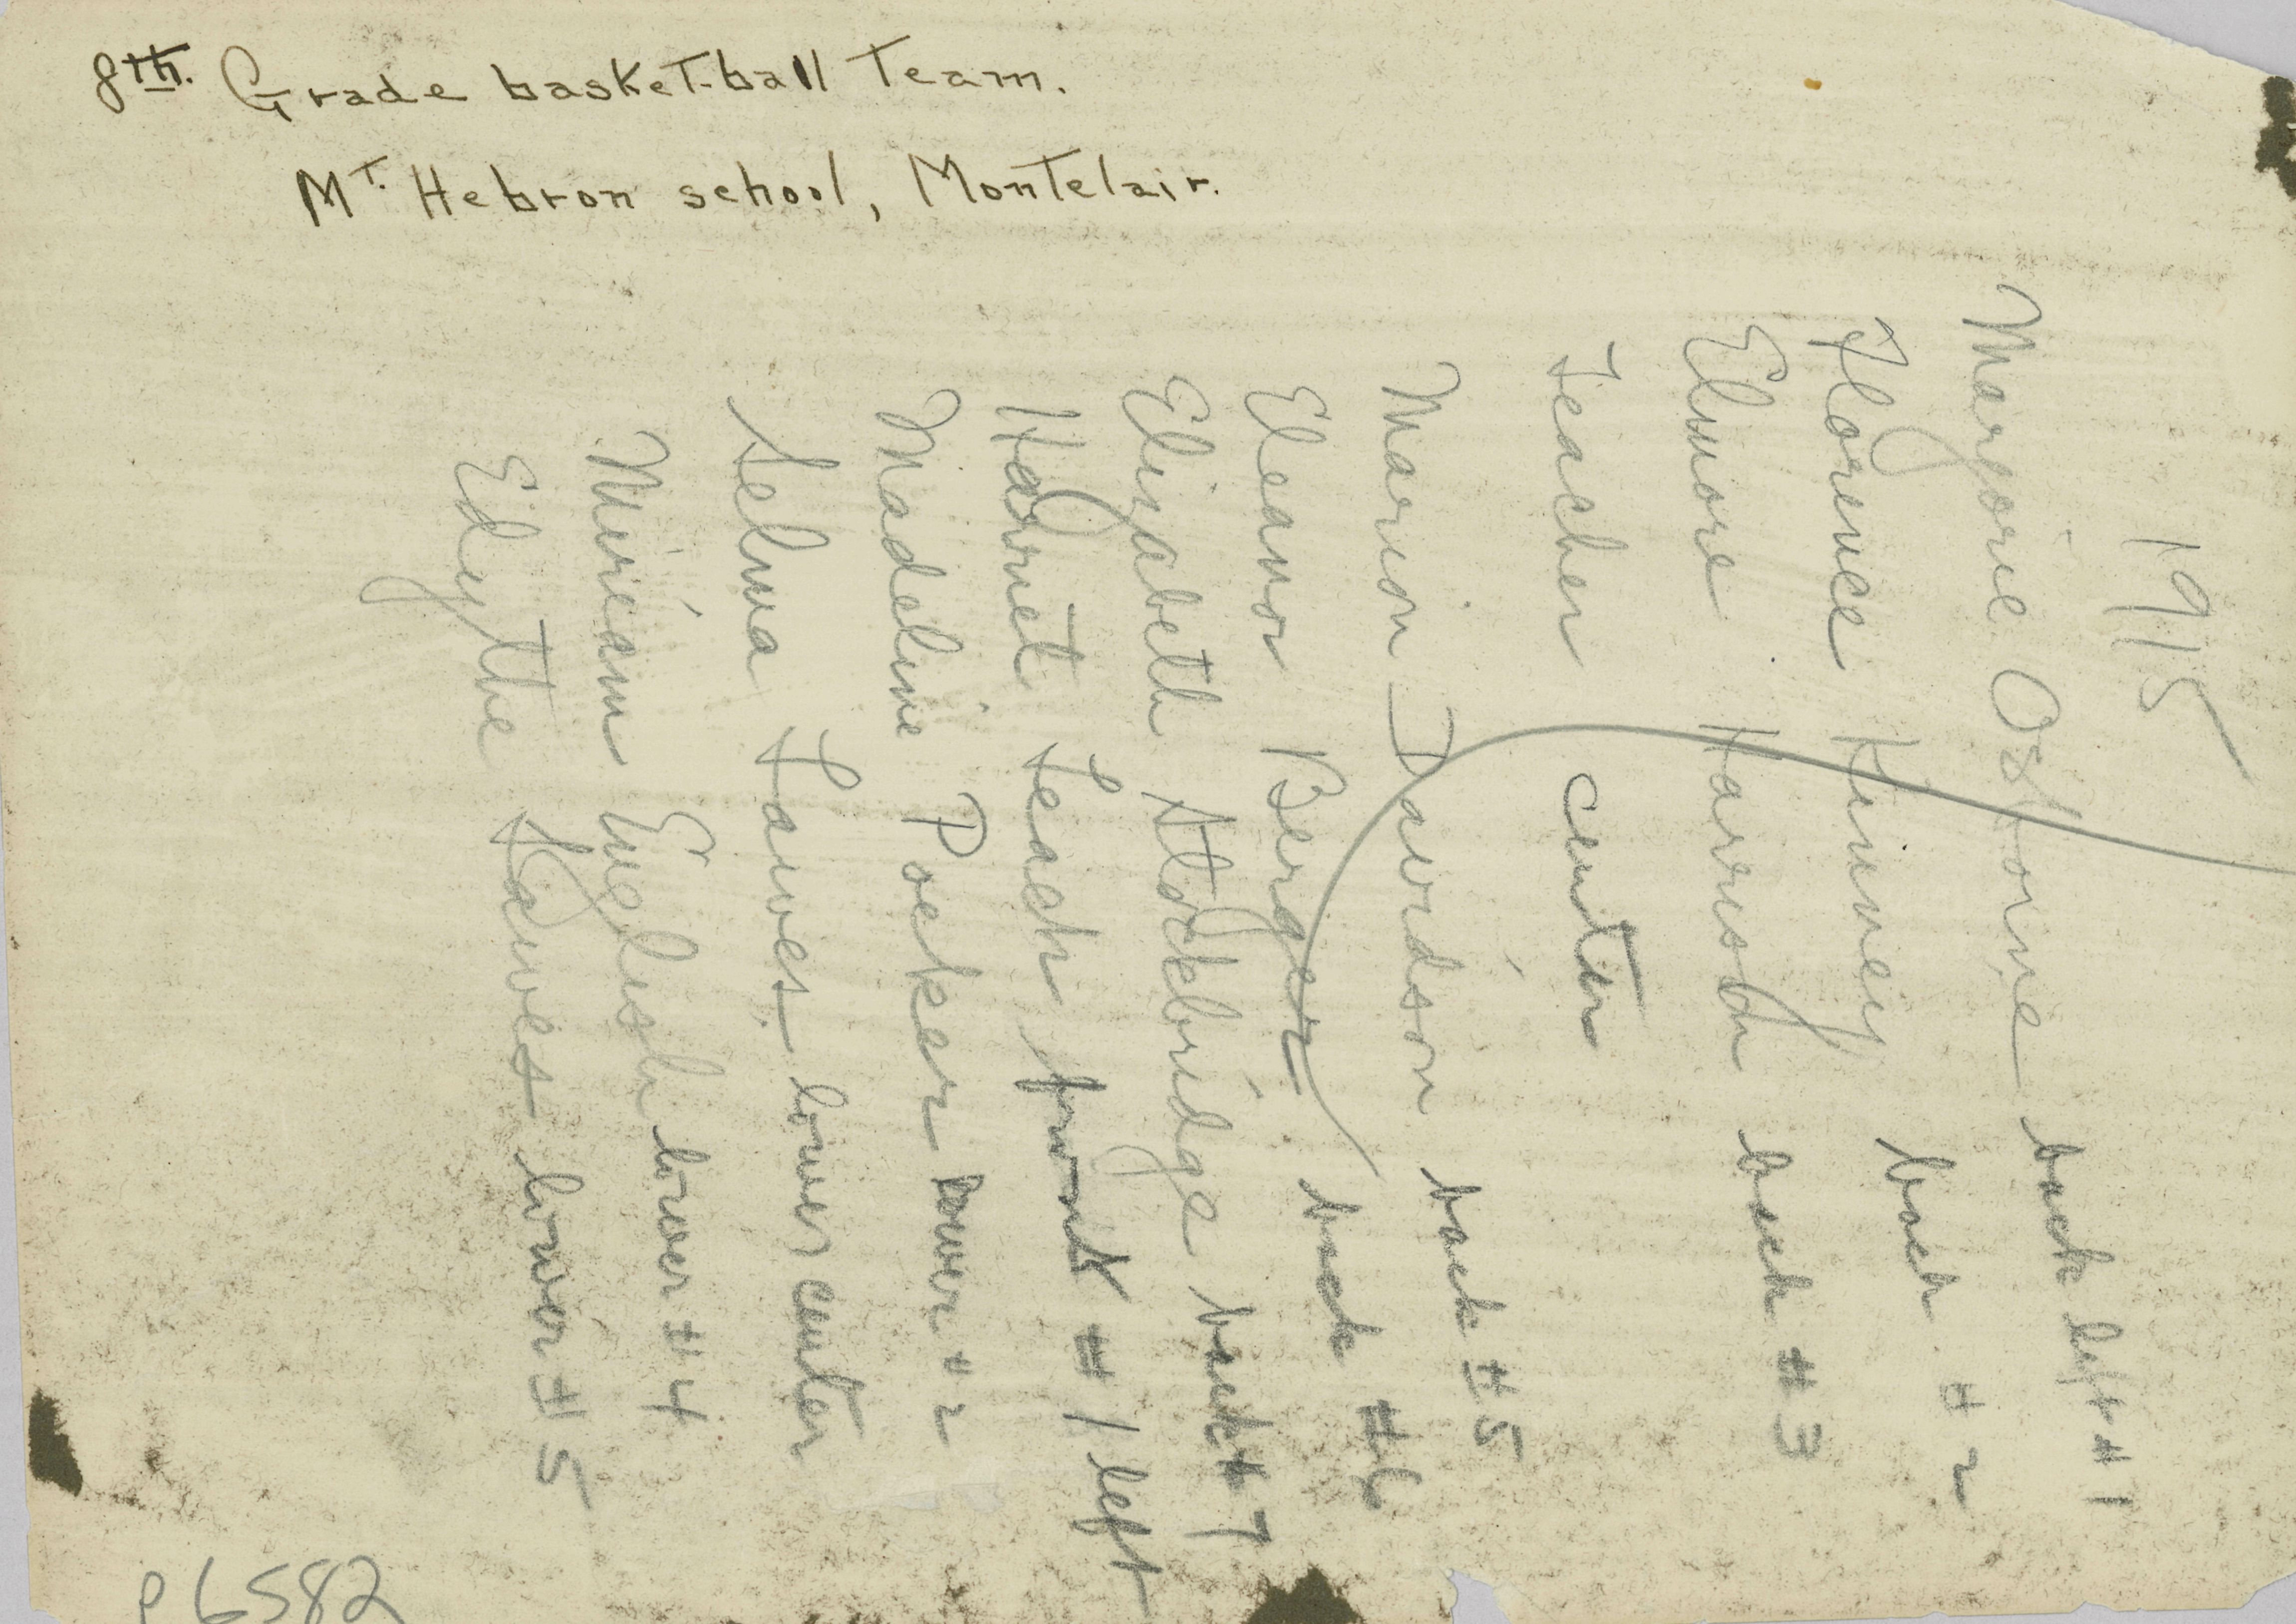 8th. Grade basket-ball Team.
MT. Hebron school, Montclair.
1915
Marjorie Osborne back left #1
Florence Kinney back #2
Elmore Harrison back #3
Teacher center
Marion Davidson back #5
Eleanor Berger back #6
Elizabeth Stockbridge back #7
Harriet Leach front #1 left
Madeline Pocker lower #2
Selma Lawes lower center
Miriam English lower #4
Edythe Lawes lower #5
p6582